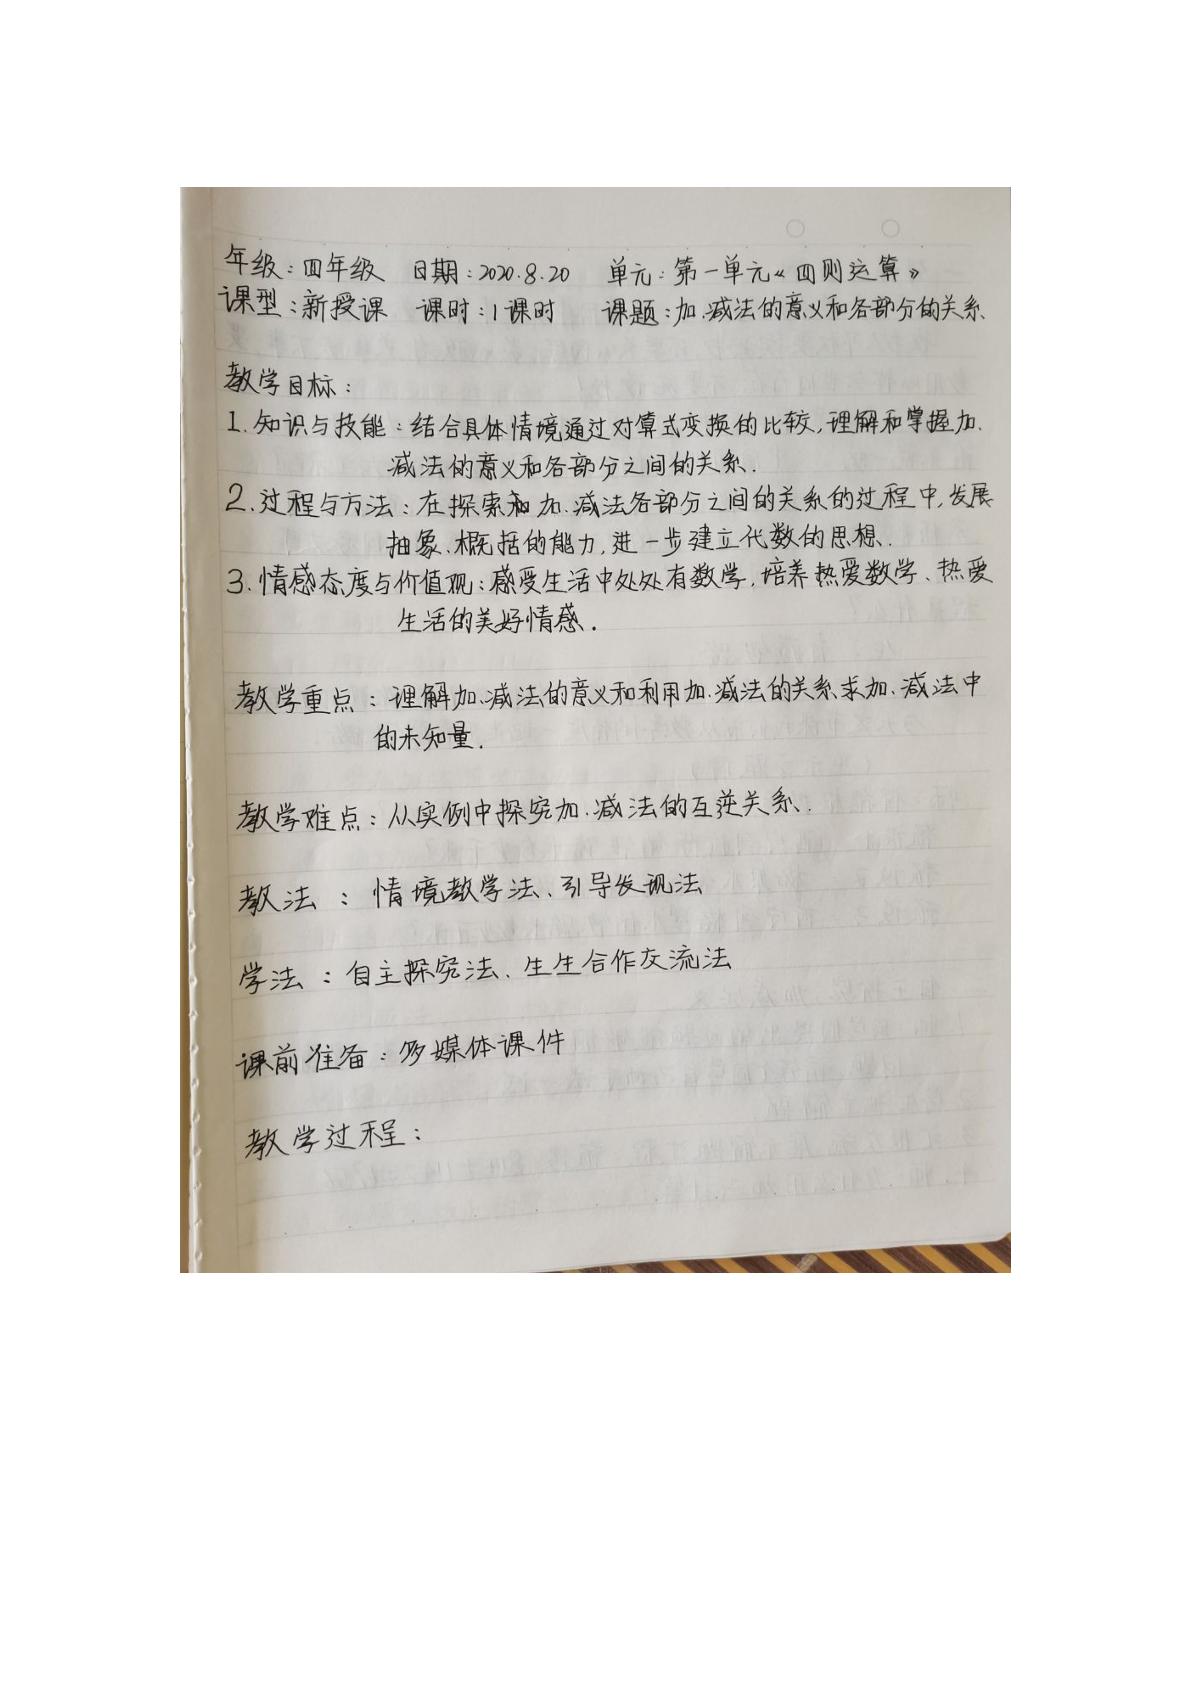 年级：四年级 日期：2020.8.20 单元：第一单元《四则运算》
课型：新授课 课时：1课时 课题：加、减法的意义和各部分的关系
教学目标：
1.知识与技能：结合具体情境通过对算式变换的比较，理解和掌握加、
减法的意义和各部分之间的关系.
2.过程与方法：在探索和加、减法各部分之间的关系的过程中，发展
抽象、概括的能力，进一步建立代数的思想.
3.情感态度与价值观：感受生活中处处有数学，培养热爱数学、热爱
生活的美好情感.
教学重点：理解加、减法的意义和利用加、减法的关系求加、减法中
的未知量.
教学难点：从实例中探究加、减法的互逆关系.
教法：情境教学法、引导发现法
学法：自主探究法、生生合作交流法
课前准备：多媒体课件
教学过程：